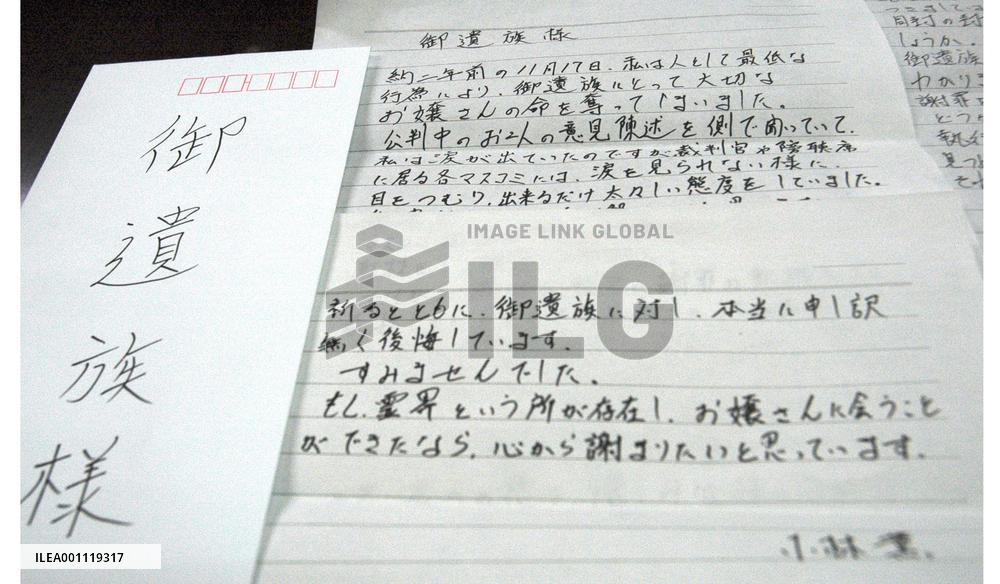 御遺族様
御遺族様
約二年前の11月17日、私は人として最低な
行為により、御遺族にとって大切な
お嬢さんの命を奪ってしまいました。
公判中のお2人の意見陳述を側で聞いていて、
私は涙が出ていたのですが裁判官や傍聴席
に居る各マスコミには、涙を見られない様に、
目をつむり、出来るだけ太々しい態度をしていました。
祈るとともに、御遺族に対し、本当に申し訳
無く後悔しています。
すみませんでした。
もし、霊界という所が存在し、お嬢さんに会うこと
ができたなら、心から謝まりたいと思っています。
小林薫
同封の封
しょうか。
御遺族
わかり
謝罪
IMAGE LINK GLOBAL
ILG
ILEA001119317